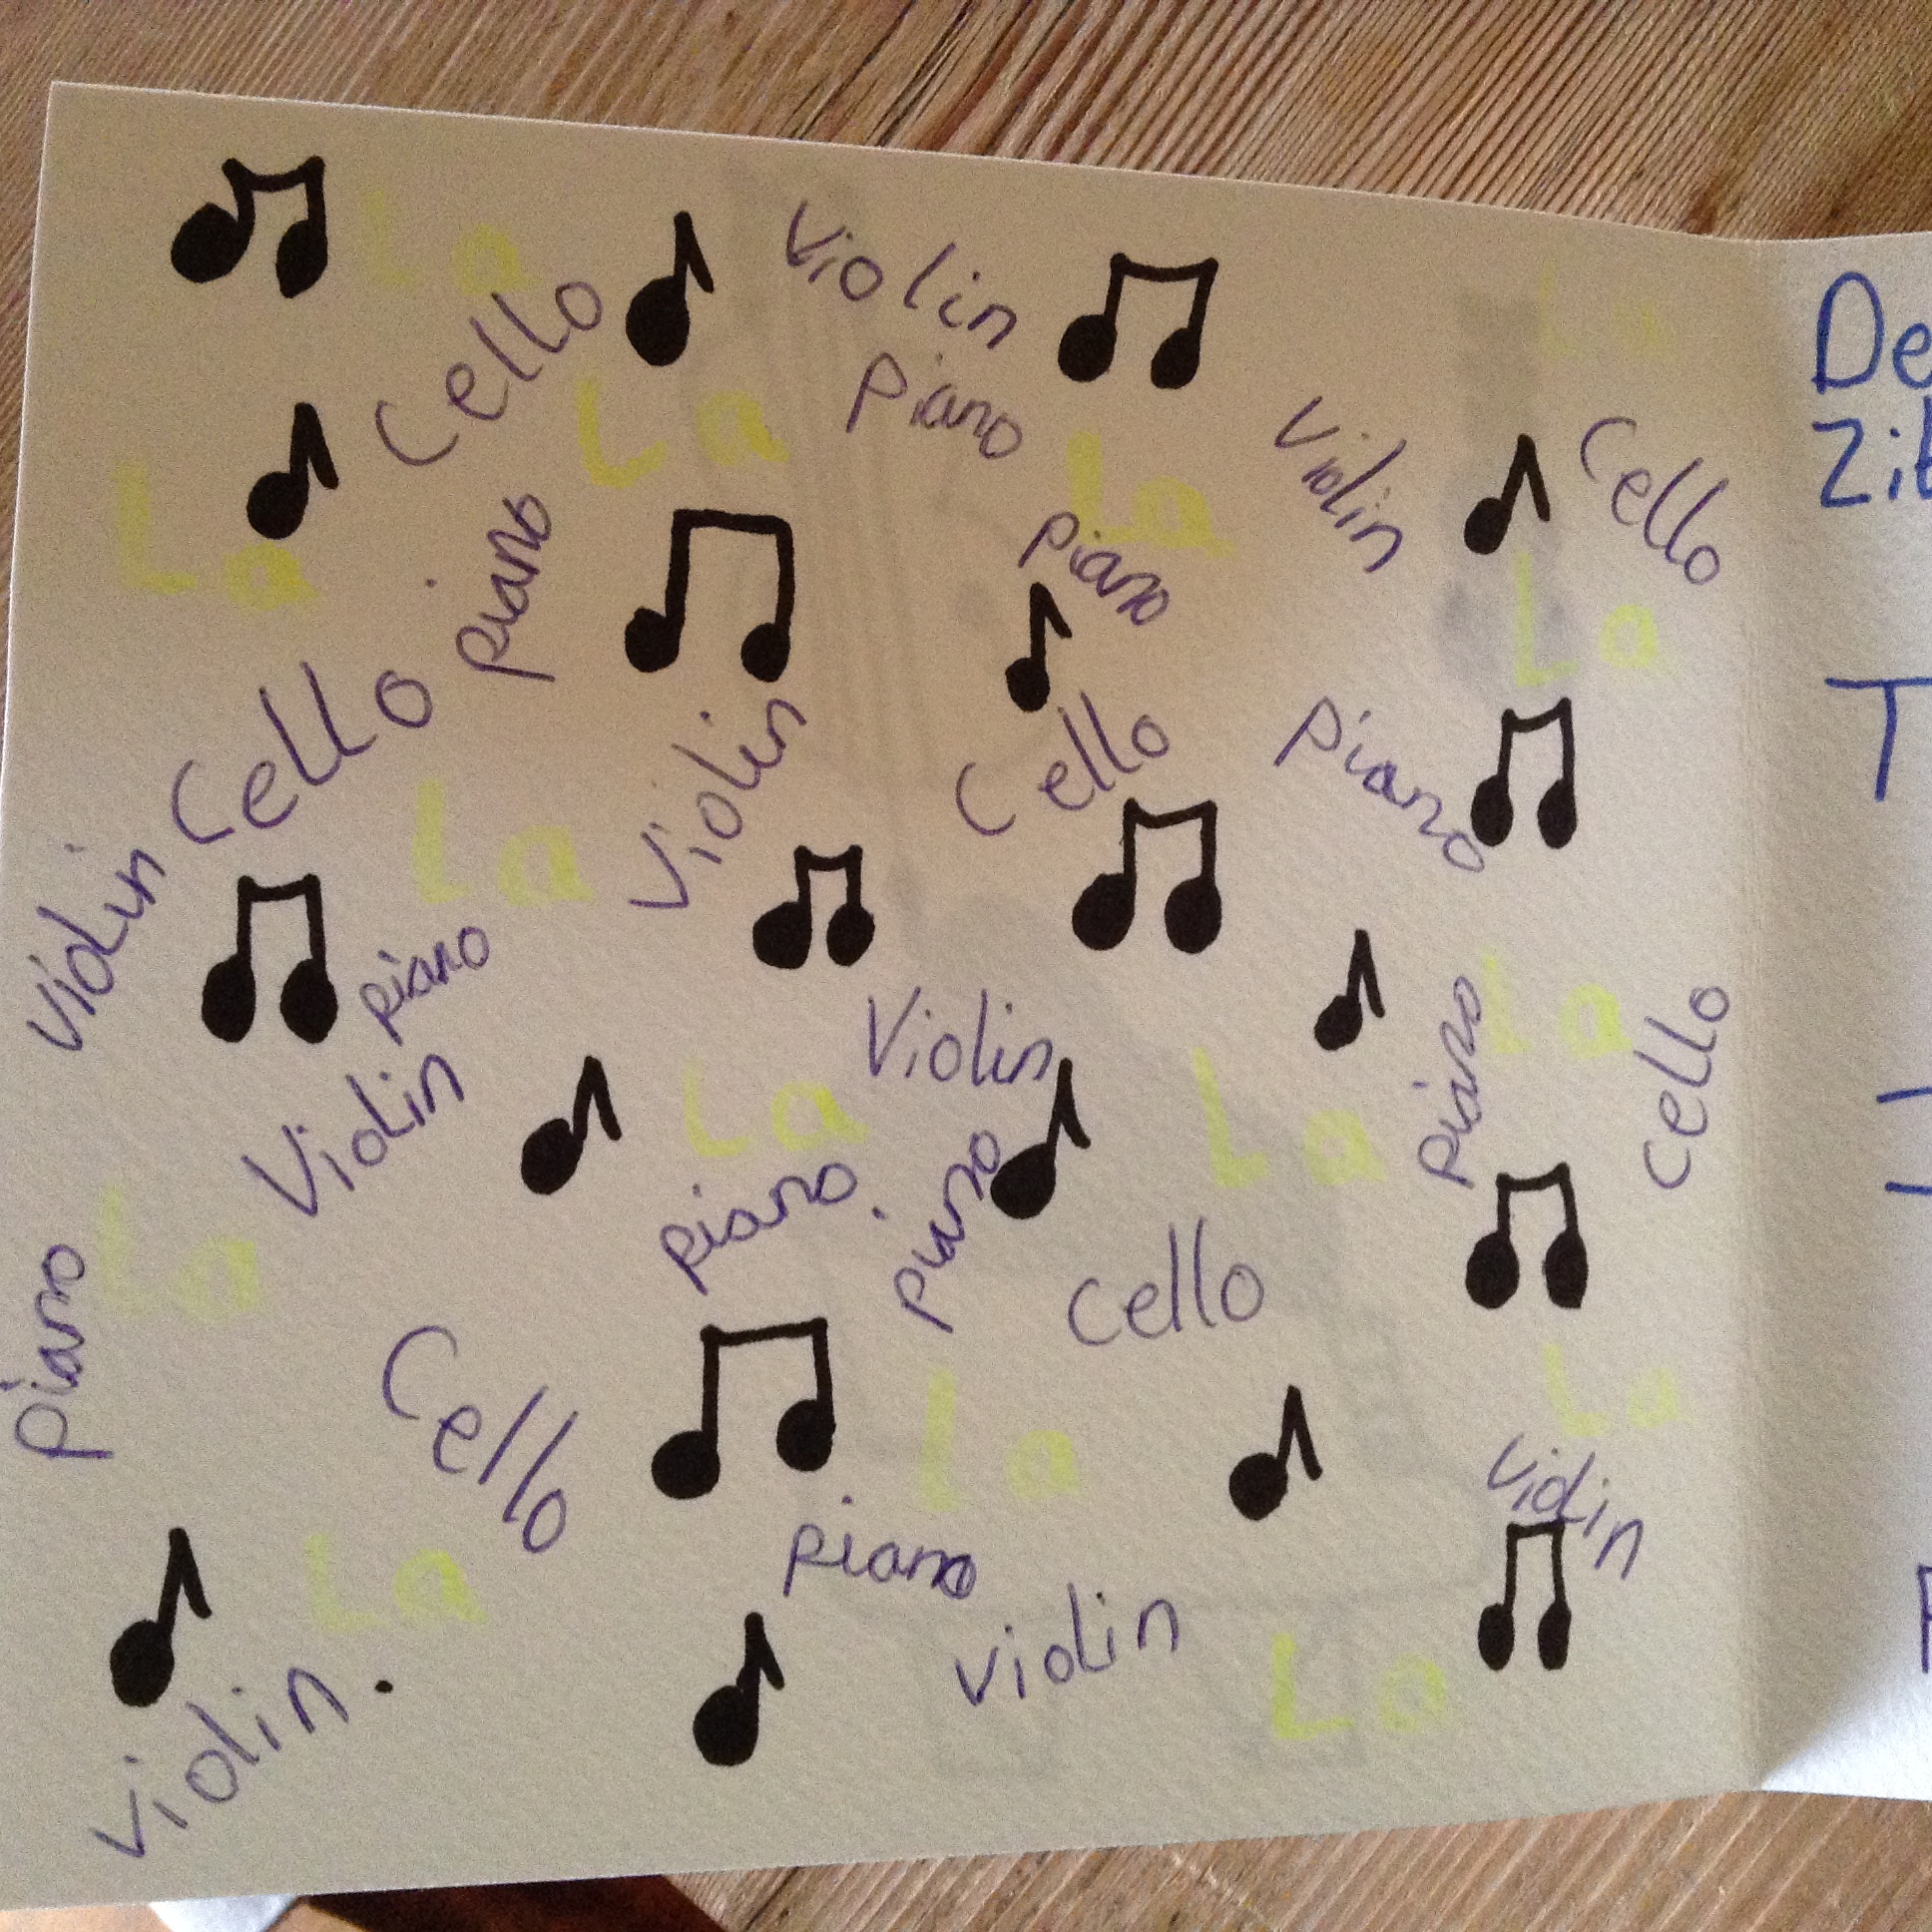 La
Cello
Violin
piano
La
La
Violin
Cello
La
La
piano
piano
La
La
Cello
Violin
Cello
piano
La
Violin
piano
Violin
Violin
piano
Cello
La
La
La
piano
piano
Cello
La
piano
Cello
La
La
Violin
La
piano
Violin
La
Violin.
De
T